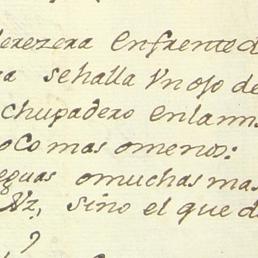 derezera enfrente d
a sehalla Vn ojo de
chupadero enlamis
oco mas omenos:
eguas omuchas mas
sino el que d